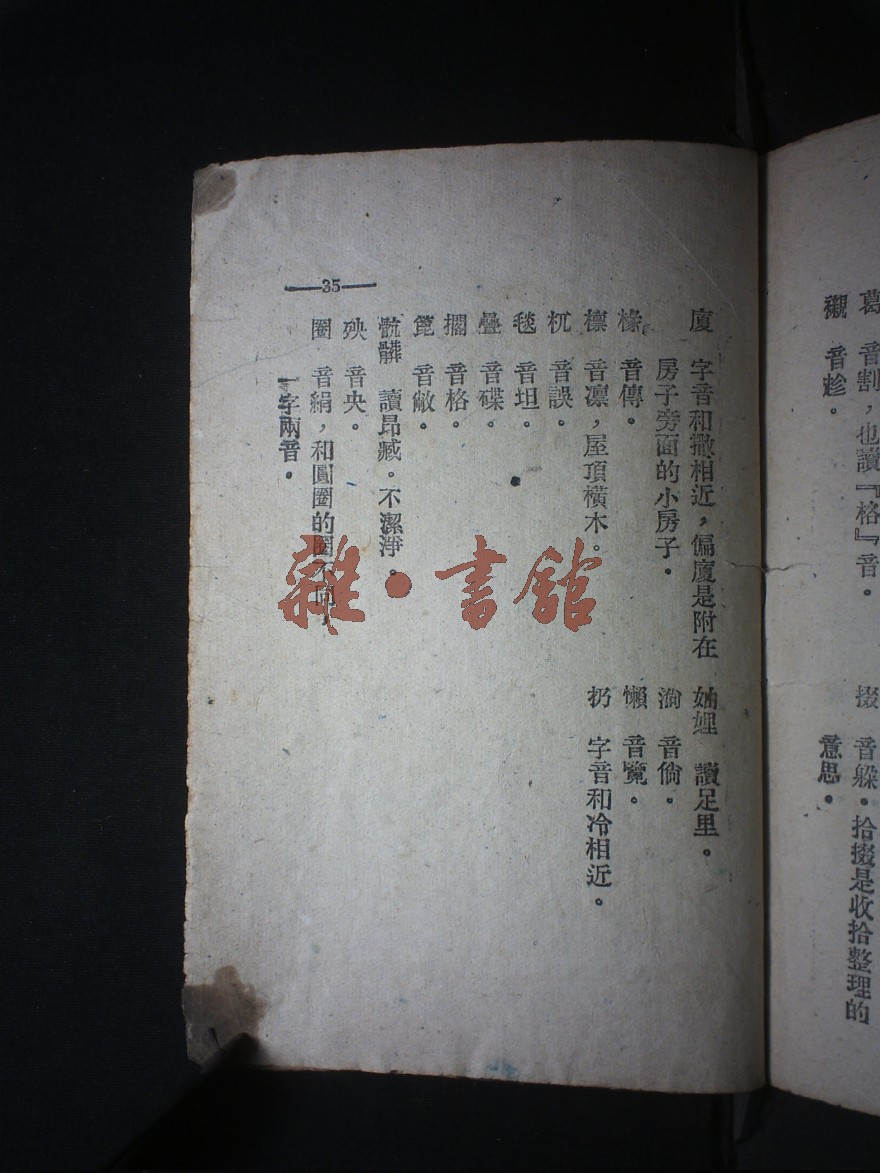 葛　音割，也讀『格』音。
襯　音趁。
掇　音躲。拾掇是收拾整理的
意思。
廈　字音和撒相近，偏廈是附在
房子旁面的小房子。
椽　音傳。
檩　音凛，屋頂橫木。
杌　音誤。
毯　音坦。
疊　音碟。
擱　音格。
音敝。
骯髒　讀昂臧。不潔淨。
殃　音央。
圈　音絹，和圓圈的圈不同，
一字兩音。
妯娌　讀足里。
淌　音倘。
懶　音覽。
扔　字音和冷相近。
—35—
雜·書館